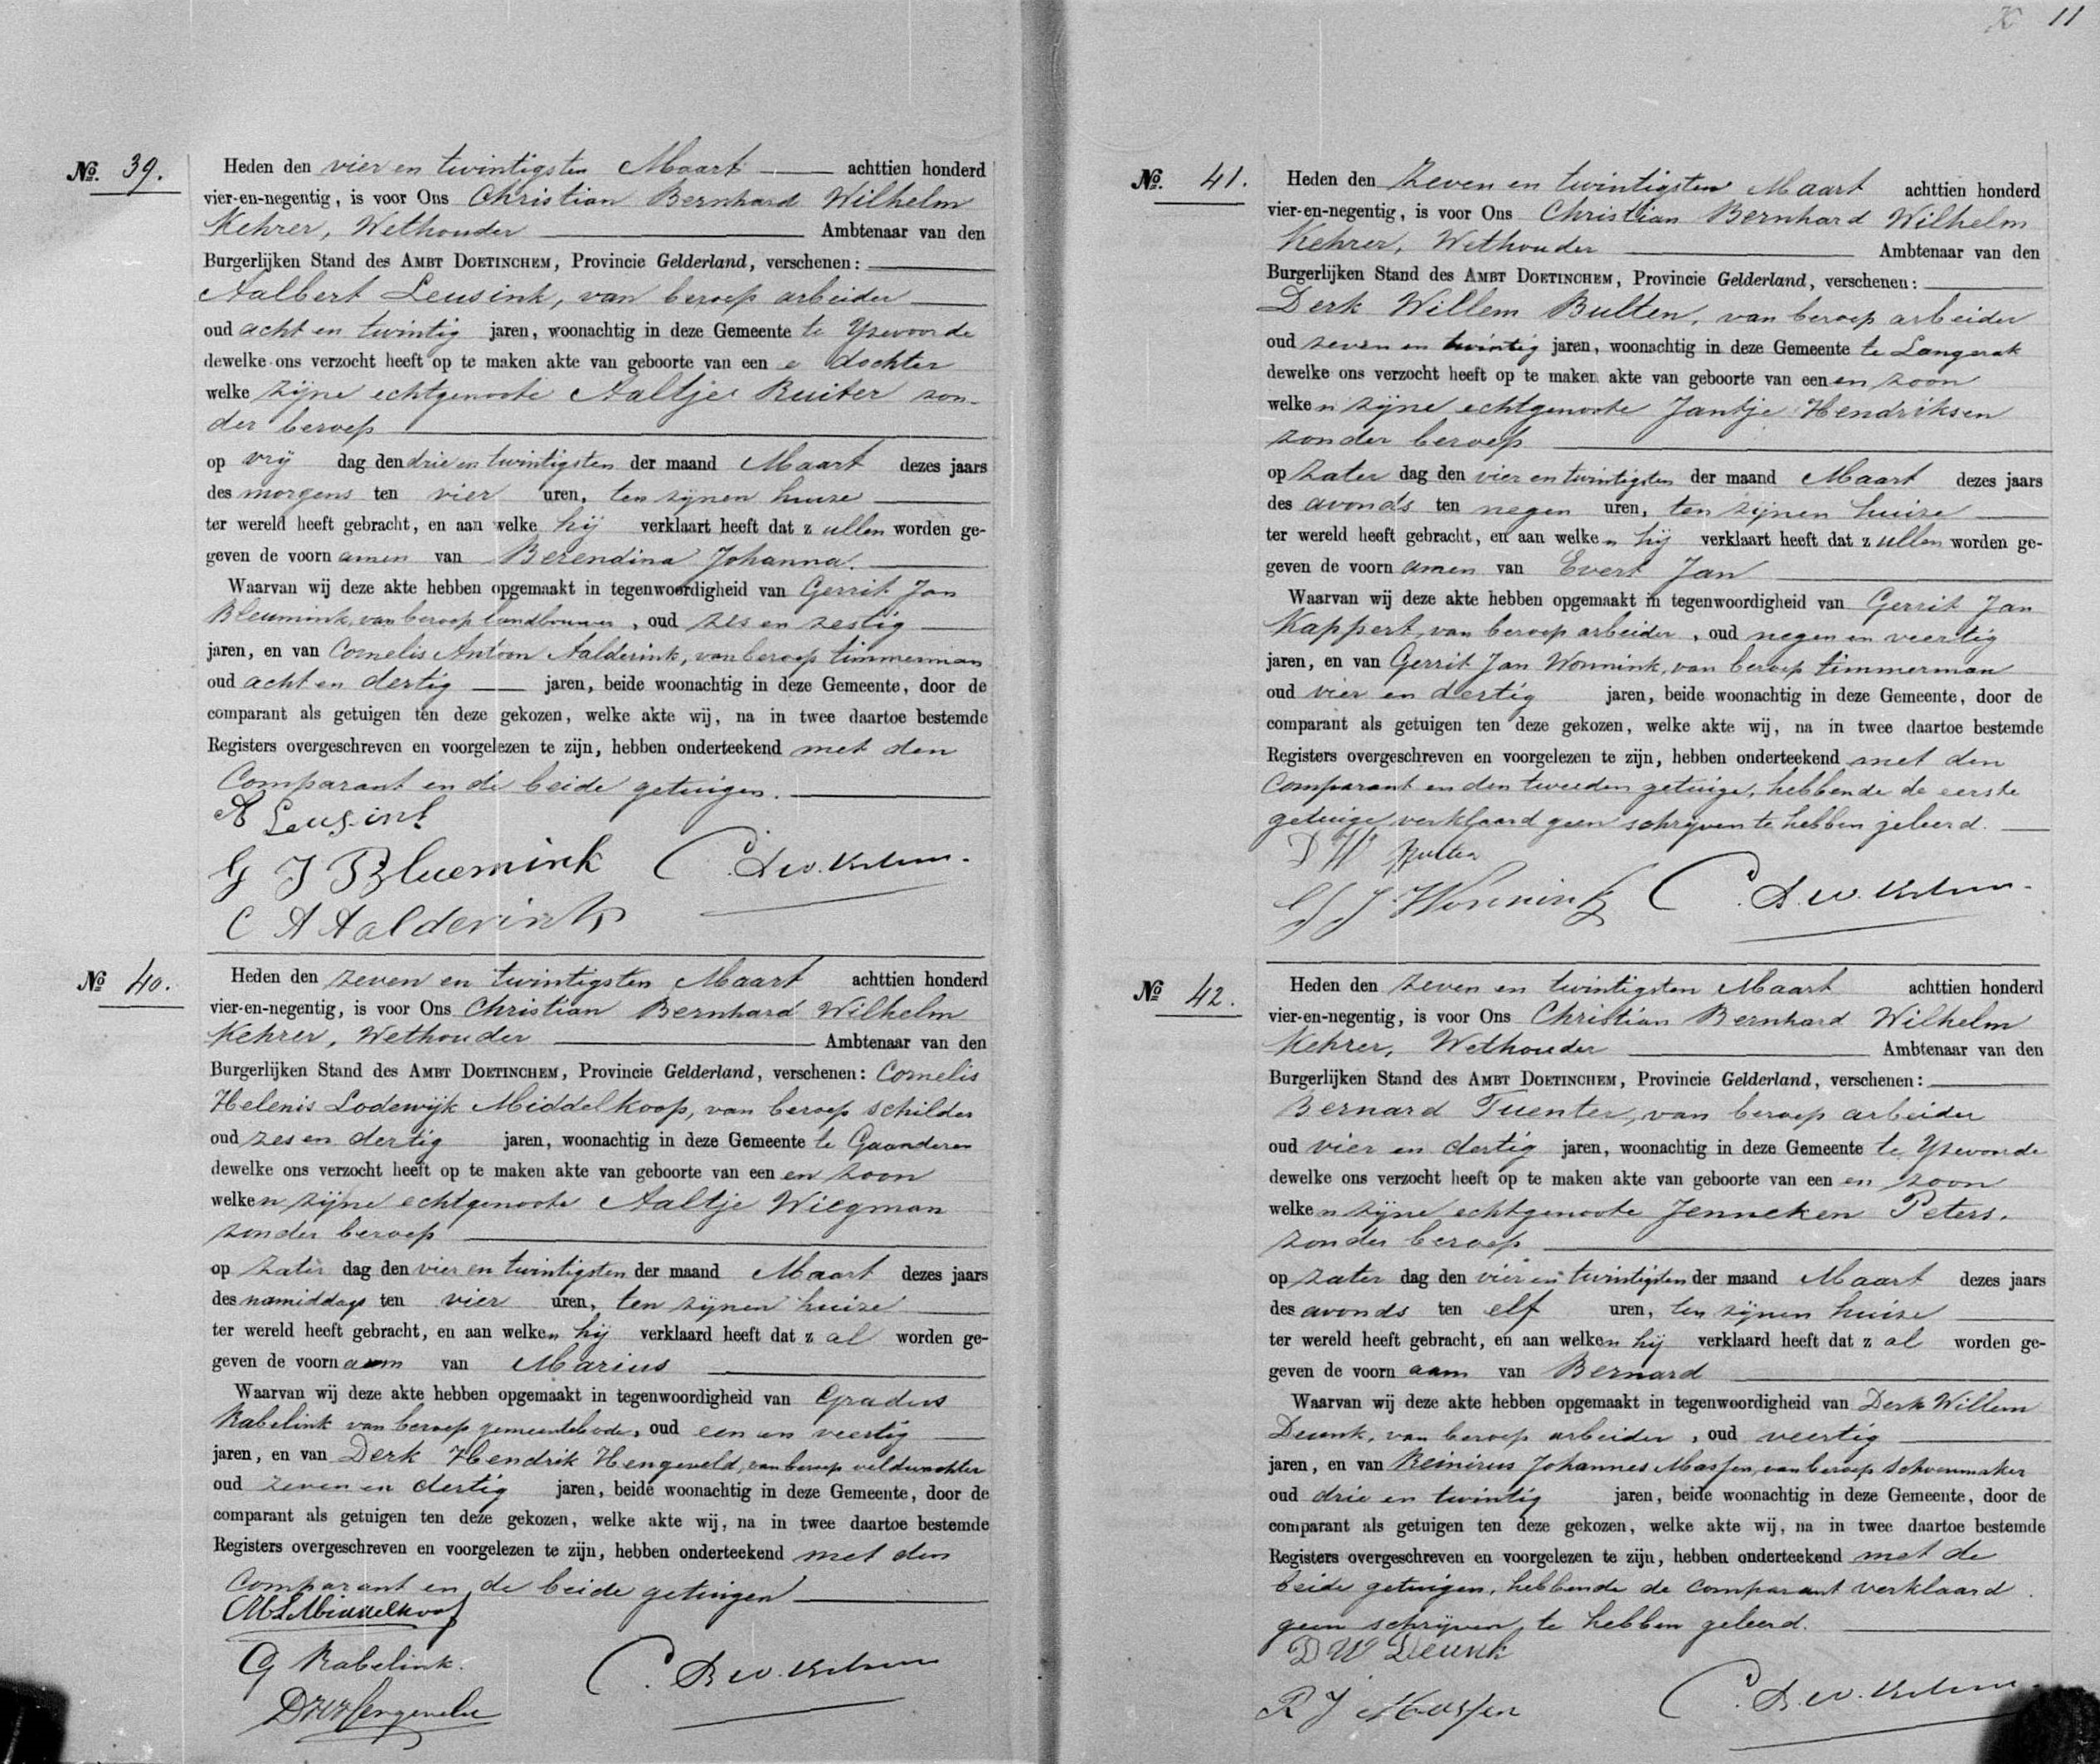 No. 39.
Heden den vier en twintigsten Maart achttien honderd
vier-en-negentig, is voor Ons Christian Bernhard Wilhelm
Kehrer, Wethouder Ambtenaar van den
Burgerlijken Stand des AMBT DOETINCHEM, Provincie Gelderland, verschenen:
Aalbert Leusink, van beroep arbeider
oud acht en twintig jaren, woonachtig in deze Gemeente te Yzevoorde
dewelke ons verzocht heeft op te maken akte van geboorte van een e dochter
welke zijne echtgenoote Aaltje Ruiter zon-
der beroep
op vrij dag den drie en twintigsten der maand Maart dezes jaars
des morgens ten vier uren, ten zijnen huize
ter wereld heeft gebracht, en aan welke hij verklaart heeft dat z ullen worden ge-
geven de voorn amen van Berendina Johanna.
Waarvan wij deze akte hebben opgemaakt in tegenwoordigheid van Gerrit Jan
Bleumink, van beroep landbouwer, oud zes en zestig
jaren, en van Cornelis Antoon Aalderink, van beroep timmerman
oud acht en dertig jaren, beide woonachtig in deze Gemeente, door de
comparant als getuigen ten deze gekozen, welke akte wij, na in twee daartoe bestemde
Registers overgeschreven en voorgelezen te zijn, hebben onderteekend met den
Comparant en de beide getuigen.
A Leusink
G J Bluemink C. B. W. Kehrer.
C A Aalderink
No 40.
Heden den zeven en twintigsten Maart achttien honderd
vier-en-negentig, is voor Ons Christian Bernhard Wilhelm
Kehrer, Wethouder Ambtenaar van den
Burgerlijken Stand des AMBT DOETINCHEM, Provincie Gelderland, verschenen: Cornelis
Helenis Lodewijk Middelkoop, van beroep schilder
oud zes en dertig jaren, woonachtig in deze Gemeente te Gaanderen
dewelke ons verzocht heeft op te maken akte van geboorte van een en zoon
welken zijne echtgenoote Aaltje Wiegman
zonder beroep
op zater dag den vier en twintigsten der maand Maart dezes jaars
des namiddags ten vier uren, ten zijnen huize
ter wereld heeft gebracht, en aan welken hij verklaard heeft dat z al worden ge-
geven de voorn aam van Marius
Waarvan wij deze akte hebben opgemaakt in tegenwoordigheid van Gradus
Rabelink van beroep gemeentebode, oud een en veertig
jaren, en van Derk Hendrik Hengeveld, van beroep veldwachter
oud zeven en dertig jaren, beide woonachtig in deze Gemeente, door de
comparant als getuigen ten deze gekozen, welke akte wij, na in twee daartoe bestemde
Registers overgeschreven en voorgelezen te zijn, hebben onderteekend met den
Comparant en de beide getuigen
CHL Middelkoop
G Rabelink. C. B. W. Kehrer
D H Hengeveld
11
No. 41.
Heden den zeven en twintigsten Maart achttien honderd
vier-en-negentig, is voor Ons Christian Bernhard Wilhelm
Kehrer, Wethouder Ambtenaar van den
Burgerlijken Stand des AMBT DOETINCHEM, Provincie Gelderland, verschenen:
Derk Willem Bulten, van beroep arbeider
oud zeven en twintig jaren, woonachtig in deze Gemeente te Langerak
dewelke ons verzocht heeft op te maken akte van geboorte van een en zoon
welken zijne echtgenoote Jantje Hendriksen
zonder beroep
op zater dag den vier en twintigsten der maand Maart dezes jaars
des avonds ten negen uren, ten zijnen huize
ter wereld heeft gebracht, en aan welken hij verklaart heeft dat z ullen worden ge-
geven de voorn amen van Evert Jan
Waarvan wij deze akte hebben opgemaakt in tegenwoordigheid van Gerrit Jan
Kappert, van beroep arbeider, oud negen en veertig
jaren, en van Gerrit Jan Wonnink, van beroep timmerman
oud vier en dertig jaren, beide woonachtig in deze Gemeente, door de
comparant als getuigen ten deze gekozen, welke akte wij, na in twee daartoe bestemde
Registers overgeschreven en voorgelezen te zijn, hebben onderteekend met den
Comparant en den tweeden getuige, hebbende de eerste
getuige verklaard geen schrijven te hebben geleerd.
D W Bulten
G J Wonnink C. B. W. Kehrer.
No 42.
Heden den zeven en twintigsten Maart achttien honderd
vier-en-negentig, is voor Ons Christian Bernhard Wilhelm
Kehrer, Wethouder Ambtenaar van den
Burgerlijken Stand des AMBT DOETINCHEM, Provincie Gelderland, verschenen:
Bernard Tuenter, van beroep arbeider
oud vier en dertig jaren, woonachtig in deze Gemeente te Yzevoorde
dewelke ons verzocht heeft op te maken akte van geboorte van een en zoon
welken zijne echtgenoote Jenneken Peters.
zonder beroep
op zater dag den vier en twintigsten der maand Maart dezes jaars
des avonds ten elf uren, ten zijnen huize
ter wereld heeft gebracht, en aan welken hij verklaard heeft dat z al worden ge-
geven de voorn aam van Bernard
Waarvan wij deze akte hebben opgemaakt in tegenwoordigheid van Derk Willem
Deunk, van beroep arbeider, oud veertig
jaren, en van Reinirus Johannes Massen, van beroep schoenmaker
oud drie en twintig jaren, beide woonachtig in deze Gemeente, door de
comparant als getuigen ten deze gekozen, welke akte wij, na in twee daartoe bestemde
Registers overgeschreven en voorgelezen te zijn, hebben onderteekend met de
beide getuigen, hebbende de comparant verklaard
geen schrijven te hebben geleerd.
D W Deunk
R J Massen C. B. W. Kehrer.